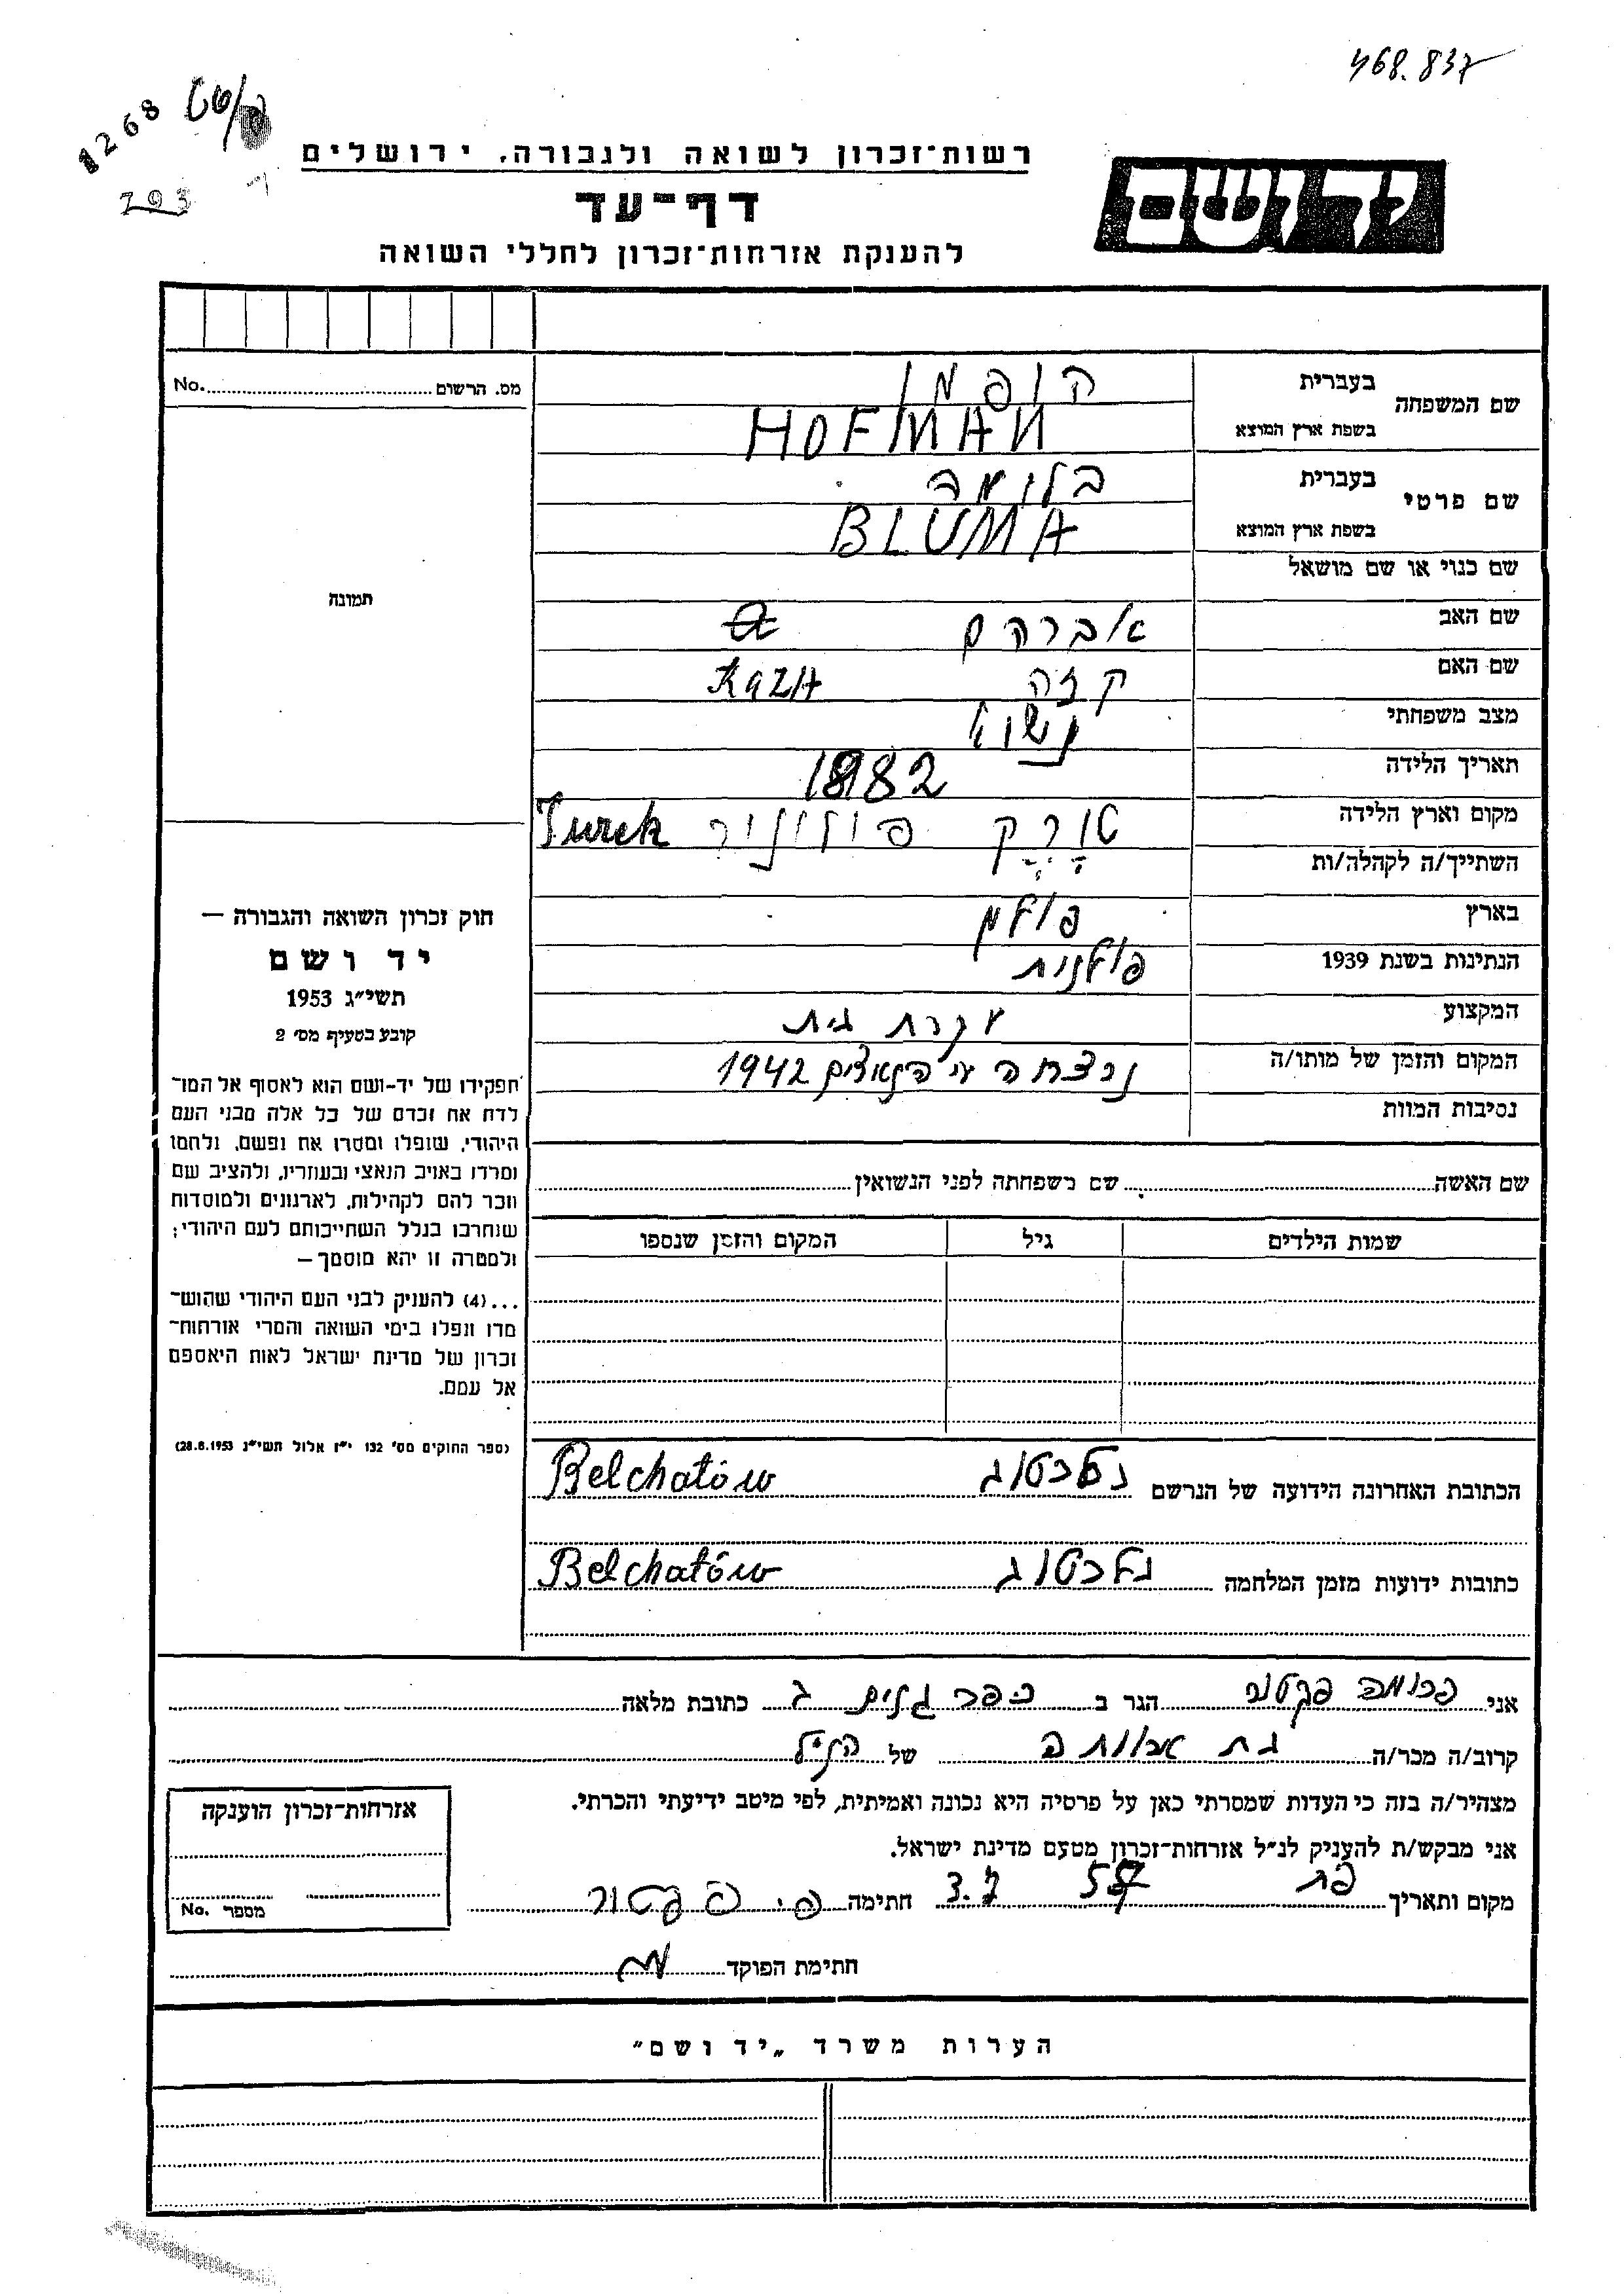 468.837
1268
203
רשות־זכרון לשואה ולגבורה, ירושלים
יד ושם
דף־עד
להענקת אזרחות־זכרון לחללי השואה
מס. הרשום No.
שם המשפחה בעברית הופמן
בשפת ארץ המוצא HOFMAN
שם פרטי בעברית בלומה
בשפת ארץ המוצא BLUMA
שם כנוי או שם מושאל
תמונה
שם האב אברהם
שם האם קזה KAZA
מצב משפחתי נשוי
תאריך הלידה 1882
מקום וארץ הלידה טורק פולניה Turek
השתייך/ה לקהלה/ות
בארץ פולין
הנתינות בשנת 1939 פולנית
המקצוע עקרת בית
המקום והזמן של מותו/ה נרצחה ע"י הנאצים 1942
נסיבות המוות
חוק זכרון השואה והגבורה —
יד ושם
תשי״ג 1953
קובע בסעיף מס׳ 2
תפקידו של יד־ושם הוא לאסוף אל המו־
לדת את זכרם של כל אלה מבני העם
היהודי, שנפלו ומסרו את נפשם, נלחמו
ומרדו באויב הנאצי ובעוזריו, ולהציב שם
וזכר להם לקהילות, לארגונים ולמוסדות
שנחרבו בגלל השתייכותם לעם היהודי;
ולמטרה זו יהא מוסמך —
...(4) להעניק לבני העם היהודי שהוש־
מדו ונפלו בימי השואה והמרי אזרחות־
זכרון של מדינת ישראל לאות היאספם
אל עמם.
(ספר החוקים מס׳ 132 י״ז אלול תשי״ג 28.8.1953)
שם האשה שם משפחתה לפני הנשואין
שמות הילדים גיל המקום והזמן שנספו
הכתובת האחרונה הידועה של הנרשם בלכטוב Belchatów
כתובות ידועות מזמן המלחמה בלכטוב Belchatów
אני הגר ב כפר גלים ג כתובת מלאה
קרוב/ה מכר/ה בת אחותה של הנ״ל
מצהיר/ה בזה כי העדות שמסרתי כאן על פרטיה היא נכונה ואמיתית, לפי מיטב ידיעתי והכרתי.
אני מבקש/ת להעניק לנ״ל אזרחות־זכרון מטעם מדינת ישראל.
מקום ותאריך חתימה
אזרחות־זכרון הוענקה
מספר No.
חתימת הפוקד
הערות משרד „יד ושם״